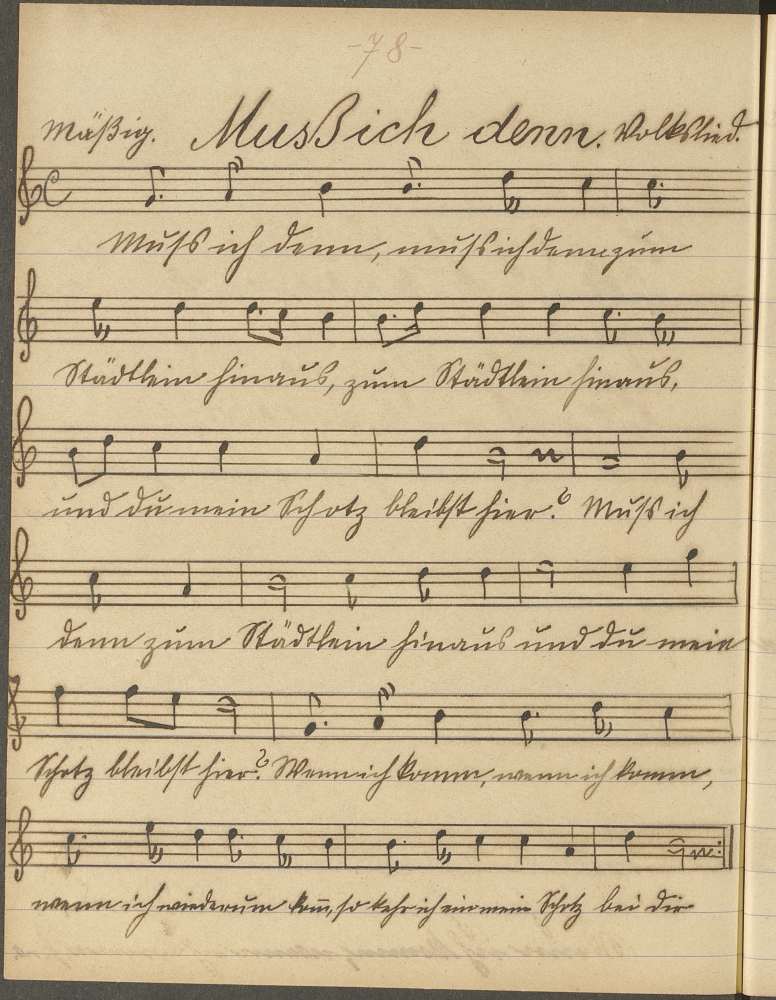 -78-
Mäßig. Muss ich denn. Volkslied.
Muss ich denn, muss ich denn zum
Städtlein hinaus, zum Städtlein hinaus,
und du mein Schatz bleibst hier? Muss ich
denn zum Städtlein hinaus und du mein
Schatz bleibst hier? Wenn ich komm, wenn ich komm,
wenn ich wiederum kom̄, so kehr ich ein mein Schatz bei dir